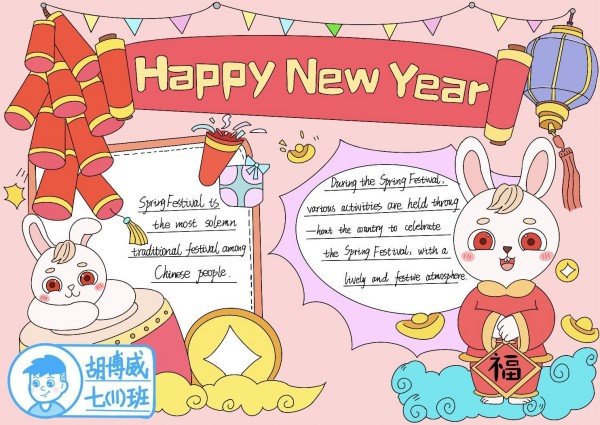 Happy New Year
Spring Festival is
the most solemn
traditional festival among
Chinese people.
During the Spring Festival,
various activities are held throug
-hout the country to celebrate
the Spring Festival, with a
lively and festive atmosphere.
福
胡博威
七(11)班